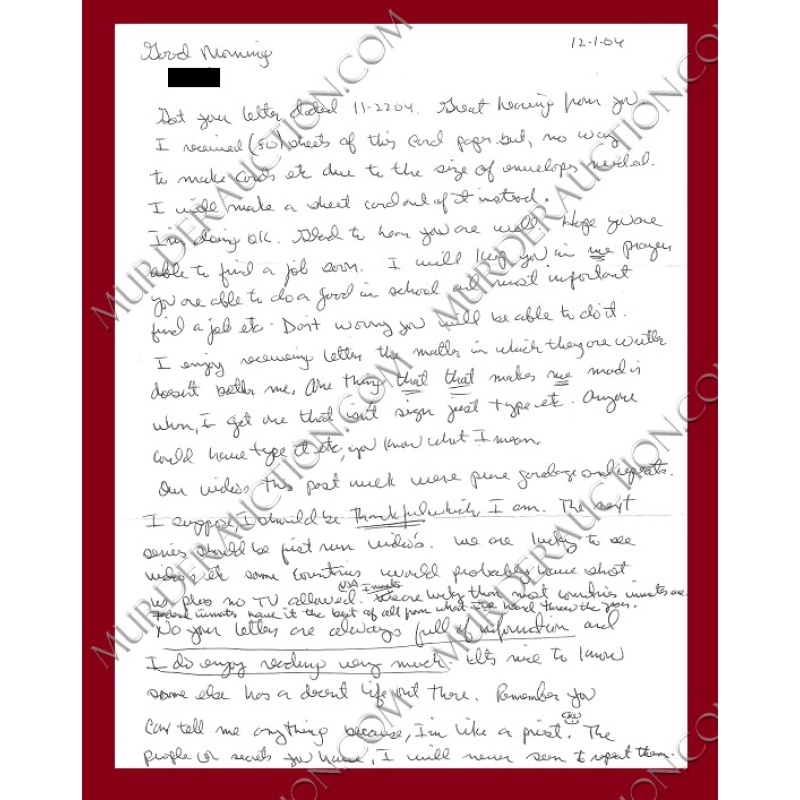 12-1-04
Good Morning
Got your letter dated 11-22-04. Great hearing from you
I received (50) sheets of this card paper but, no way
to make cards etc due to the size of envelops needed.
I will make a sheet card out of it instead.
I'm doing OK. Glad to hear you are well. Hope you are
able to find a job soon. I will keep you in me prayers
you are able to do a good in school and most important
find a job etc. Don't worry you will be able to do it.
I enjoy receiving letter the matter in which they are written
doesn't bother me, one thing that that makes me mad is
when, I get one that isn't sign just type etc. Anyone
could have type it etc, you know what I mean.
Our videos this past week were pure garbage and repeats.
I suppose, I should be thankful which I am. The next
series should be first run video's. We are lucky to see
videos etc some countries would probably have shot
us plus no TV allowed. USA Inmates are lucky than most countries inmates are.
Federal inmates have it the best of all from what I've heard threw the years.
No your letters are always full of information and
I do enjoy reading very much. It's nice to know
some else has a decent life out there. Remember you
can tell me anything because, I'm like a priest. The
people or secrets you have, I will never seen to repeat them.
MURDERAUCTION.COM
MURDERAUCTION.COM
MURDERAUCTION.COM
MURDERAUCTION.COM
MURDERAUCTION.COM
MURDERAUCTION.COM